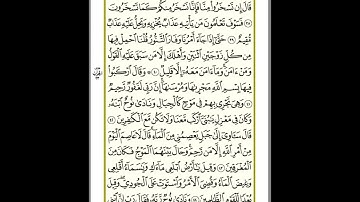 قَالَ إِن تَسْخَرُوا۟ مِنَّا فَإِنَّا نَسْخَرُ مِنكُمْ كَمَا تَسْخَرُونَ
٣٨ فَسَوْفَ تَعْلَمُونَ مَن يَأْتِيهِ عَذَابٌ يُخْزِيهِ وَيَحِلُّ عَلَيْهِ عَذَابٌ
مُّقِيمٌ ٣٩ حَتَّىٰٓ إِذَا جَآءَ أَمْرُنَا وَفَارَ ٱلتَّنُّورُ قُلْنَا ٱحْمِلْ فِيهَا
مِن كُلٍّ زَوْجَيْنِ ٱثْنَيْنِ وَأَهْلَكَ إِلَّا مَن سَبَقَ عَلَيْهِ ٱلْقَوْلُ
وَمَنْ ءَامَنَ وَمَآ ءَامَنَ مَعَهُۥٓ إِلَّا قَلِيلٌ ٤٠ وَقَالَ ٱرْكَبُوا۟
فِيهَا بِسْمِ ٱللَّهِ مَجْر۪ىٰهَا وَمُرْسَىٰهَآ إِنَّ رَبِّى لَغَفُورٌ رَّحِيمٌ
٤١ وَهِىَ تَجْرِى بِهِمْ فِى مَوْجٍ كَٱلْجِبَالِ وَنَادَىٰ نُوحٌ ٱبْنَهُۥ
وَكَانَ فِى مَعْزِلٍ يَٰبُنَىَّ ٱرْكَب مَّعَنَا وَلَا تَكُن مَّعَ ٱلْكَٰفِرِينَ ٤٢
قَالَ سَـَٔاوِىٓ إِلَىٰ جَبَلٍ يَعْصِمُنِى مِنَ ٱلْمَآءِ قَالَ لَا عَاصِمَ ٱلْيَوْمَ
مِنْ أَمْرِ ٱللَّهِ إِلَّا مَن رَّحِمَ وَحَالَ بَيْنَهُمَا ٱلْمَوْجُ فَكَانَ مِنَ
ٱلْمُغْرَقِينَ ٤٣ وَقِيلَ يَٰٓأَرْضُ ٱبْلَعِى مَآءَكِ وَيَٰسَمَآءُ أَقْلِعِى
وَغِيضَ ٱلْمَآءُ وَقُضِىَ ٱلْأَمْرُ وَٱسْتَوَتْ عَلَى ٱلْجُودِىِّ وَقِيلَ
بُعْدًا لِّلْقَوْمِ ٱلظَّٰلِمِينَ ٤٤ وَنَادَىٰ نُوحٌ رَّبَّهُۥ فَقَالَ رَبِّ إِنَّ ٱبْنِى